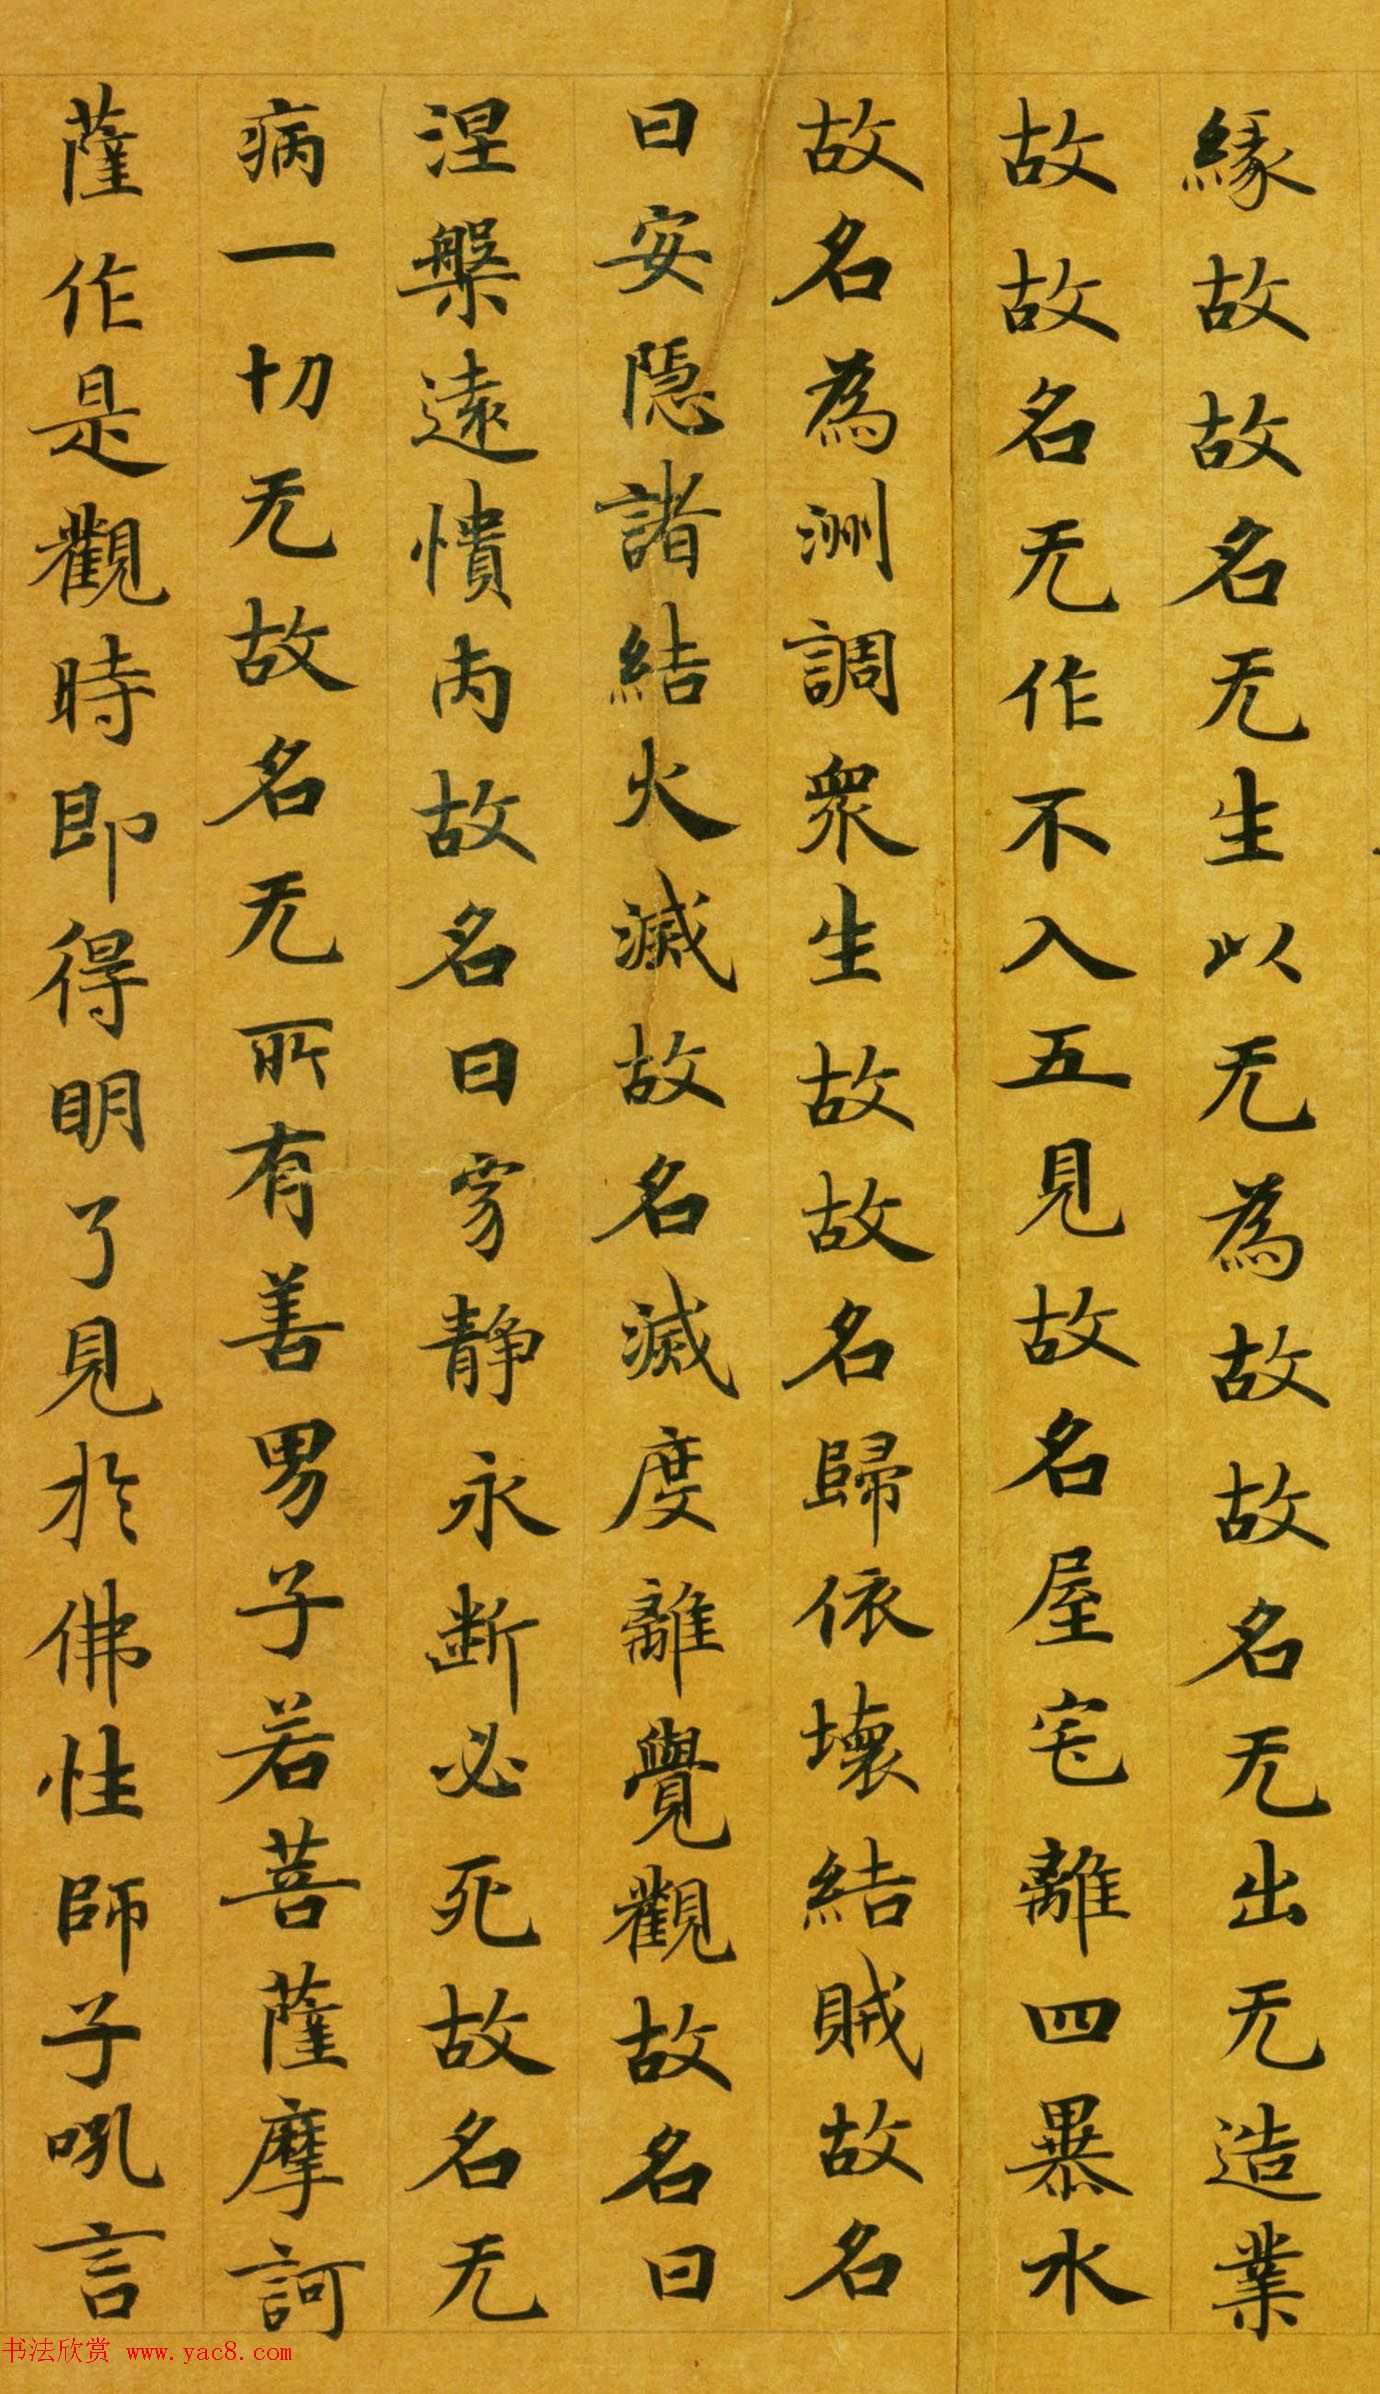 緣故故名无生以无為故故名无出无造業
故故名无作不入五見故名屋宅離四暴水
故名為洲調衆生故故名歸依壞結賊故名
曰安隱諸結火滅故名滅度離覺觀故名曰
涅槃遠憒丙故名曰寂静永断必死故名无
病一切无故名无所有善男子若菩薩摩訶
薩作是觀時即得明了見於佛性師子吼言
书法欣赏 www.yac8.com